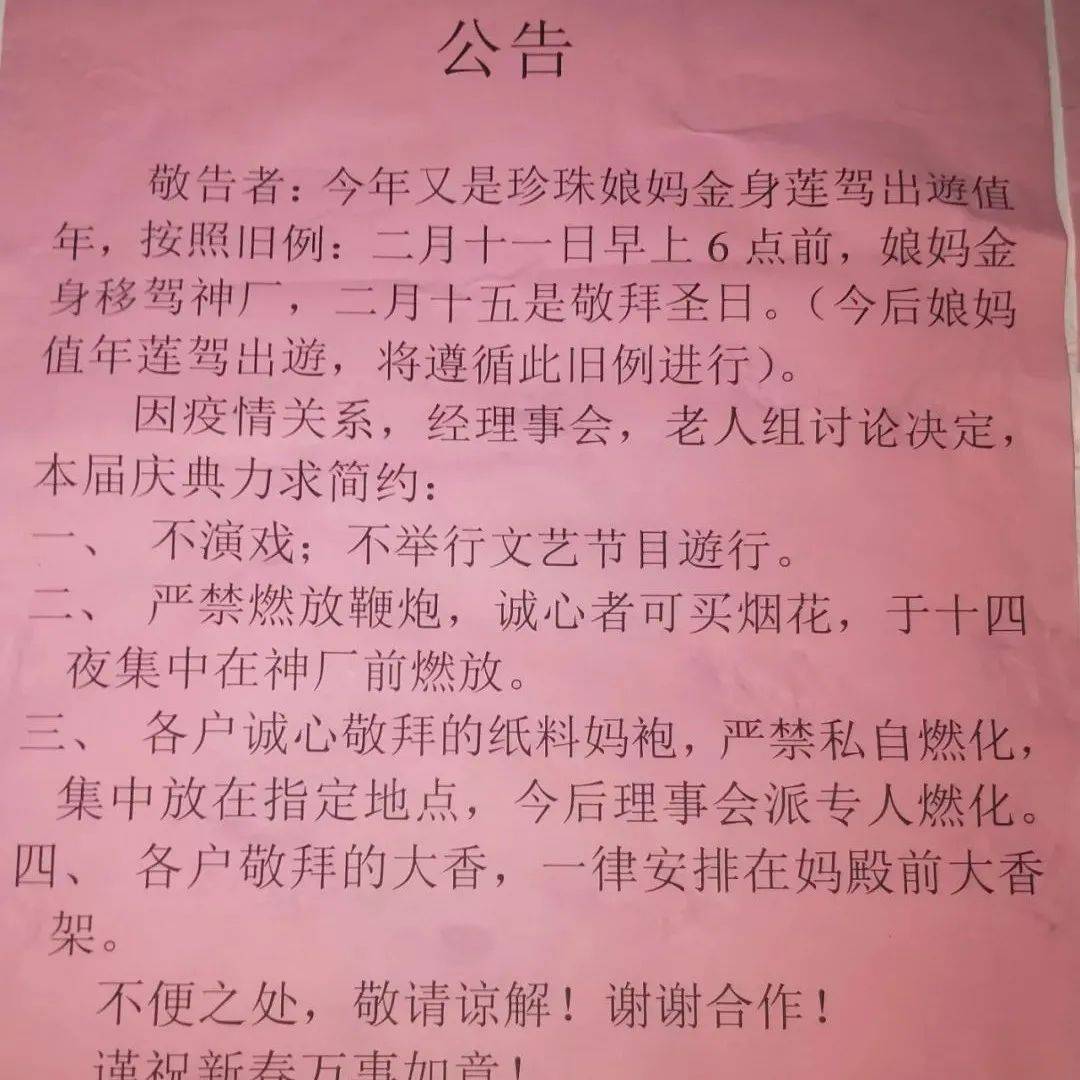 公告
敬告者：今年又是珍珠娘妈金身莲驾出遊值
年，按照旧例：二月十一日早上6点前，娘妈金
身移驾神厂，二月十五是敬拜圣日。（今后娘妈
值年莲驾出遊，将遵循此旧例进行）。
因疫情关系，经理事会，老人组讨论决定，
本届庆典力求简约：
一、 不演戏；不举行文艺节目遊行。
二、 严禁燃放鞭炮，诚心者可买烟花，于十四
夜集中在神厂前燃放。
三、 各户诚心敬拜的纸料妈袍，严禁私自燃化，
集中放在指定地点，今后理事会派专人燃化。
四、 各户敬拜的大香，一律安排在妈殿前大香
架。
不便之处，敬请谅解！谢谢合作！
谨祝新春万事如意！